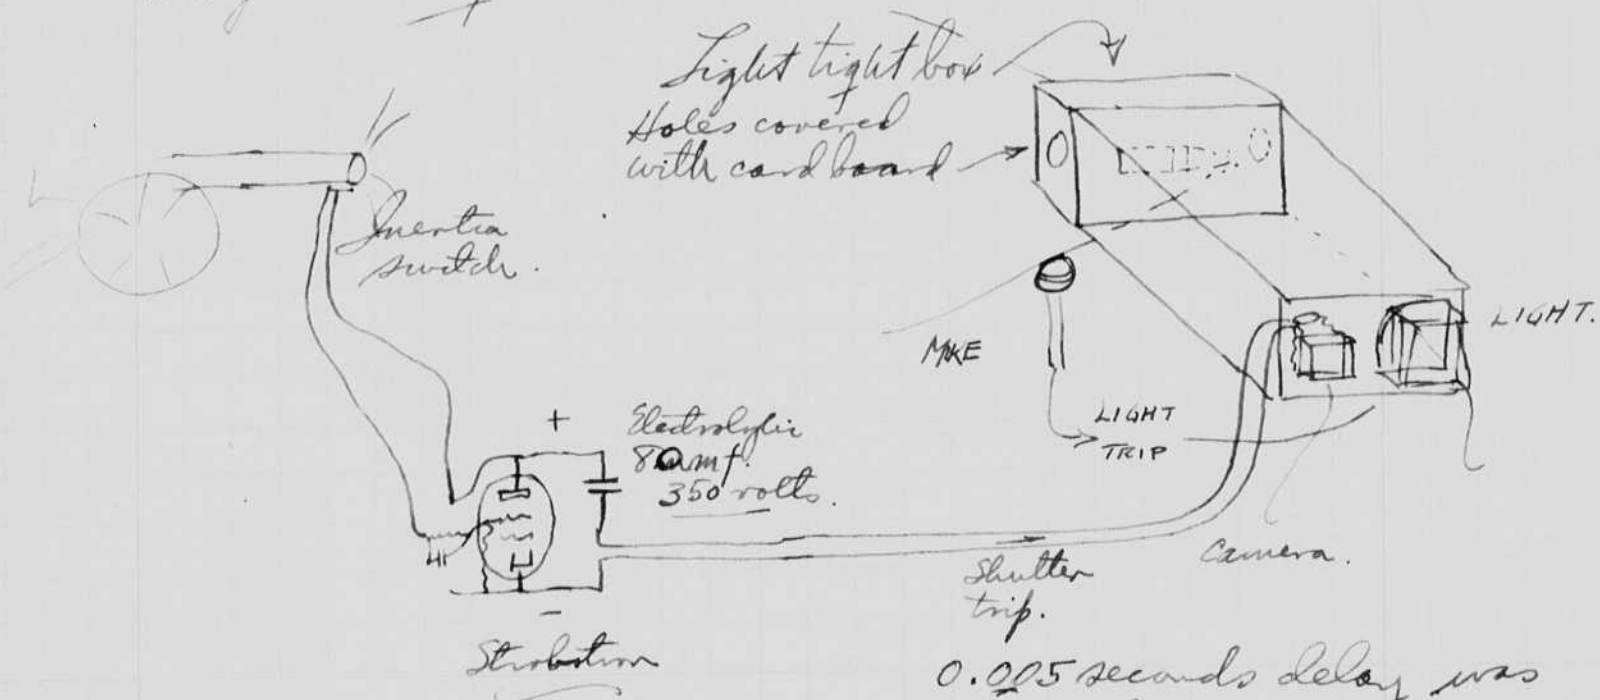 Light tight box
Holes covered
with cardboard
Inertia
switch.
MIKE
LIGHT.
LIGHT
TRIP
+
Electrolytic
80 mf.
350 volts.
Shutter
trip.
Camera.
-
Strobotron
0.005 seconds delay was